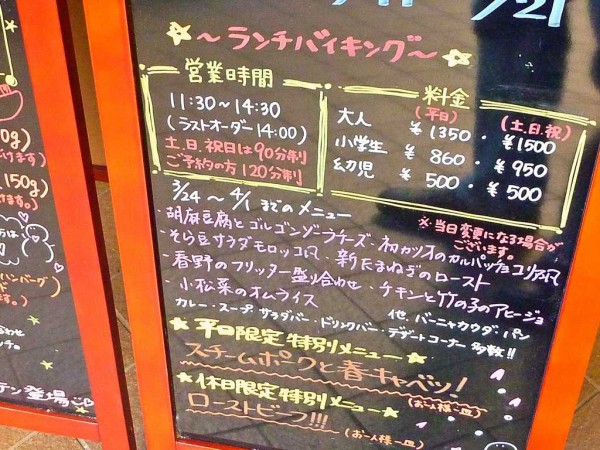 21
～ランチバイキング～
営業時間
11:30～14:30
(ラストオーダー 14:00)
土.日.祝日は90分制
ご予約の方 120分制
料金
(平日) (土.日.祝)
大人 ¥1350 ・ ¥1500
小学生 ¥860 ・ ¥950
幼児 ¥500 ・ ¥500
3/24 ～ 4/1 までのメニュー
※当日変更になる場合が
ございます。
・胡麻豆腐とゴルゴンゾーラチーズ・初カツオのカルパッチョコリア風
・そら豆サラダモロッコ風・新たまねぎのロースト
・春野のフリッター盛り合わせ・チキンと竹の子のアヒージョ
・小松菜のオムライス 他.バーニャカウダ.パン
カレー・スープ.サラダバー・ドリンクバー・デザートコーナー多数!!
★平日限定 特別メニュー★
スチームポークと春キャベツ!
(お一人様一皿)
★休日限定特別メニュー★
ローストビーフ!!!
(お一人様一皿)
0g)
けます)
(150g)
ます。)
ハンバーグ
ます。
わせ
テン登場